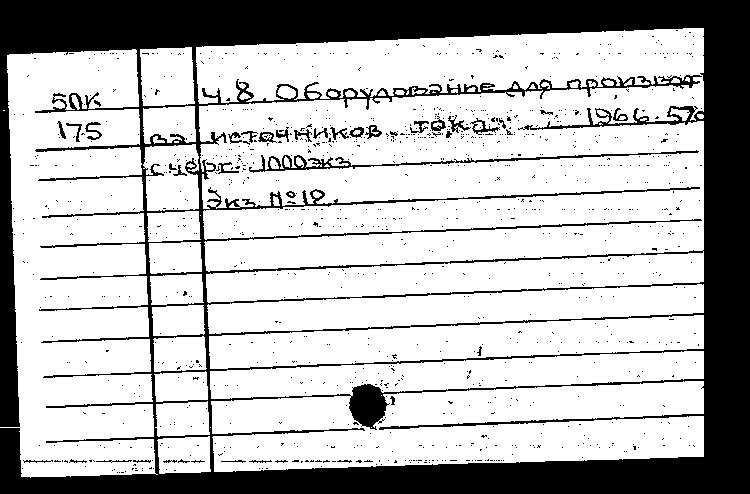 50К Ч.8. Оборудование для производст
175 ва источников тока. 1966. 570
с черт. 1000экз.
Экз. №18.